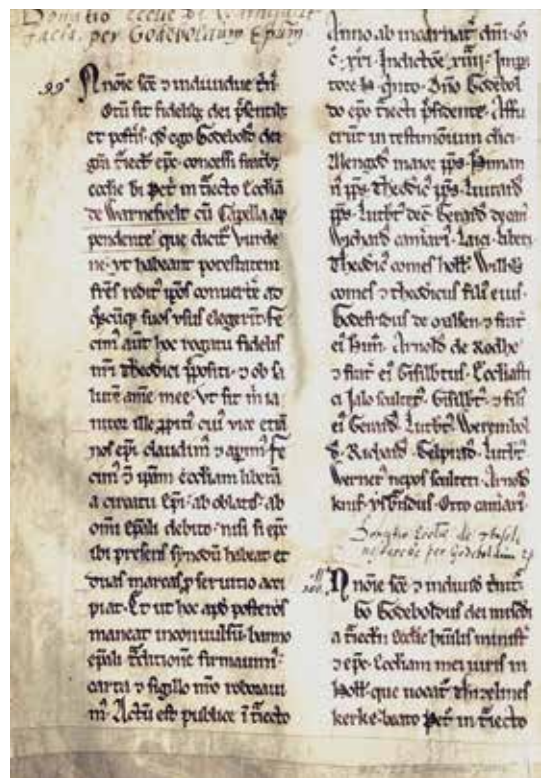 Donatio eccle̅ de Warnesfelt
facta per Godeboldum Ep̅um.
99
N nōie sc̄e ⁊ indiuidue t̄n̄
Notū sit fidelib; dei p̄sentib;
et post̄is. q̄d ego Godebold̄ dei
gr̄a t̄iect̄ ep̄c. concessi fr̄ib;
eccl̄ie b̄i pet̄ in t̄iecto Eccl̄iā
de Warnesvelt cū Capella ap
pendente que dicit̄ Vurde
ne. vt habeant potestatem
fr̄es reditꝰ ip̄os conuert̄e ad
q̄scūq; suos vsus elegerīt. Fe
cimꝰ aut̄ hoc rogatu fidelis
nr̄i Theodici p̄positi. ⁊ ob sa
lutē anīe mee. vt sit m̄ ia
nitor ille cuiꝰ vice etiā
nos ep̄i claudimꝰ ⁊ ap̄imꝰ. Fe
cimꝰ ⁊ ip̄am eccl̄iam liberā
a circuitu Ep̄i. ab oblat̄. ab
om̄i ep̄ali debito. nisi si ep̄c
ibi presens synodū habeat et
duas marcas ꝓ seruitio acci
piat. Et ut hoc apd̄ posteros
maneat inconuulsū. banno
ep̄ali t̄ditione firmauimꝰ.
carta ⁊ sigillo nr̄o roboraui
mꝰ. Actū est publice ī t̄iecto
Anno ab incarnat̄ dn̄i. ḿ.
c̊. xxi. Indictōe xiiii. Imp̄a
tore h. q̄nto. Dn̄o Godebol
do ep̄o t̄iecti p̄sidente. Affu
erūt in testimoniū clici.
Mengod̄ maior pp̄s. Herman
n̄ pp̄s. Theod̄ic pp̄s. Luitard̄
pp̄s. Lutb̄t dec̄. Gerard̄ decan̄.
Wichard̄ cam̄ari. Laici. liberi
Theod̄ic comes holt̄. Will̄ēs
comes ⁊ theodicus filꝰ eius.
Godefridus de ⁊ frat̄
eiꝰ Arnold̄ de Rodhe
⁊ frat̄ eiꝰ Gisilb̄tus. Eccl̄iasti
ci Jalo scultet̄. Gisilb̄t̄ ⁊ filꝰ
eiꝰ Gerard̄. Lutb̄t̄. Werenbol
d̄. Richard̄. Gelp̄rad̄. Lutb̄t̄.
Werner̄ nepos sculteti. Arnold̄
knif. Otto cam̄ari.
Donatio Eccle̅ de
kercke per Godeboldum Ep
100
N nōie sc̄e ⁊ indiuid̄ t̄nit̄.
Godeboldus dei misedi
a t̄iectn̄ eccl̄ie hūilis minist̄
⁊ ep̄c. Eccl̄iam mei iuris in
holt̄. que uocat̄ Thyzelines
kerke. beato Pet̄ in t̄iecto